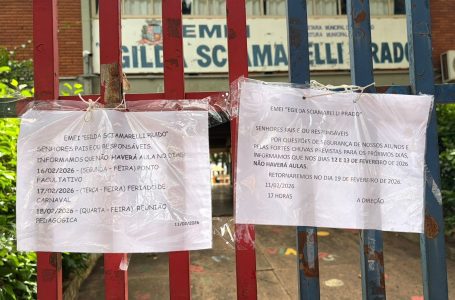 EMEI
EGILDA SCIAMARELLI PRADO
EMEI "EGILDA SCIAMARELLI PRADO"
SENHORES PAIS E OU RESPONSÁVEIS,
INFORMAMOS QUE NÃO HAVERÁ AULA NO DIAS:
16/02/2026 - (SEGUNDA - FEIRA) PONTO
FACULTATIVO
17/02/2026 - (TERÇA - FEIRA) FERIADO DE
CARNAVAL
18/02/2026 - (QUARTA - FEIRA) REUNIÃO
PEDAGÓGICA
11/02/2026
EMEI "EGILDA SCIAMARELLI PRADO"
SENHORES PAIS E OU RESPONSÁVEIS
POR QUESTÕES DE SEGURANÇA DE NOSSOS ALUNOS E
PELAS FORTES CHUVAS PREVISTAS PARA OS PRÓXIMOS DIAS,
INFORMAMOS QUE NOS DIAS 12 E 13 DE FEVEREIRO DE 2026,
NÃO HAVERÁ AULAS.
RETORNAREMOS NO DIA 19 DE FEVEREIRO DE 2026.
11/02/2026
17 HORAS A DIREÇÃO